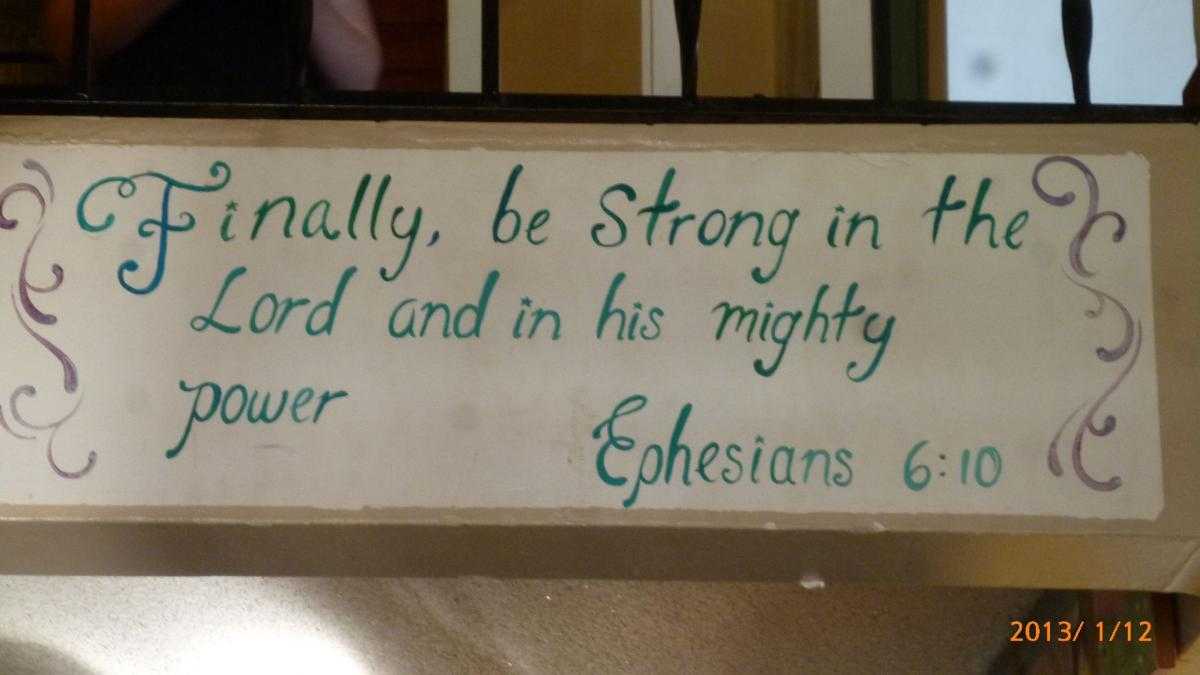 Finally, be Strong in the
Lord and in his mighty
power
Ephesians 6:10
2013/ 1/12